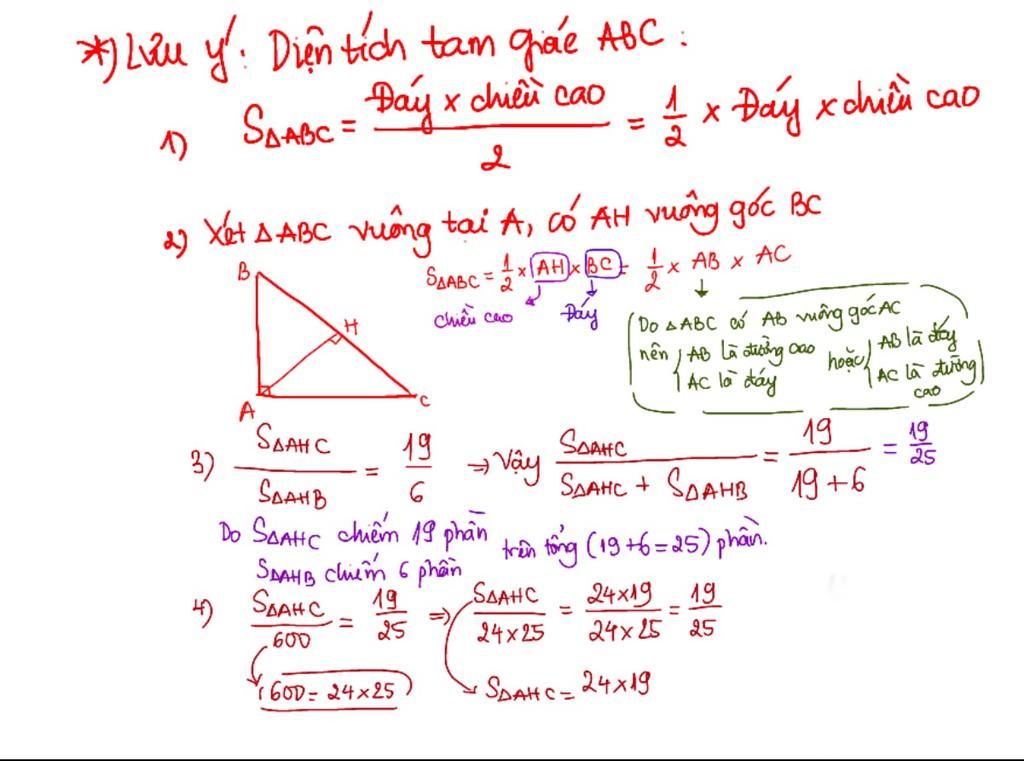 *) Lưu ý: Diện tích tam giác ABC:
1) SΔABC = (Đáy x chiều cao)/2 = 1/2 x Đáy x chiều cao
2) Xét ΔABC vuông tại A, có AH vuông góc BC
SΔABC = 1/2 x AH x BC = 1/2 x AB x AC
chiều cao Đáy
B
H
A
C
Do ΔABC có AB vuông góc AC
nên { AB là đường cao hoặc { AB là đáy
AC là đáy AC là đường cao
3) SΔAHC/SΔAHB = 19/6 ⇒ Vậy SΔAHC/(SΔAHC + SΔAHB) = 19/(19+6) = 19/25
Do SΔAHC chiếm 19 phần
SΔAHB chiếm 6 phần trên tổng (19+6=25) phần.
4) SΔAHC/600 = 19/25 ⇒ SΔAHC/(24x25) = (24x19)/(24x25) = 19/25
(600 = 24x25) SΔAHC = 24x19